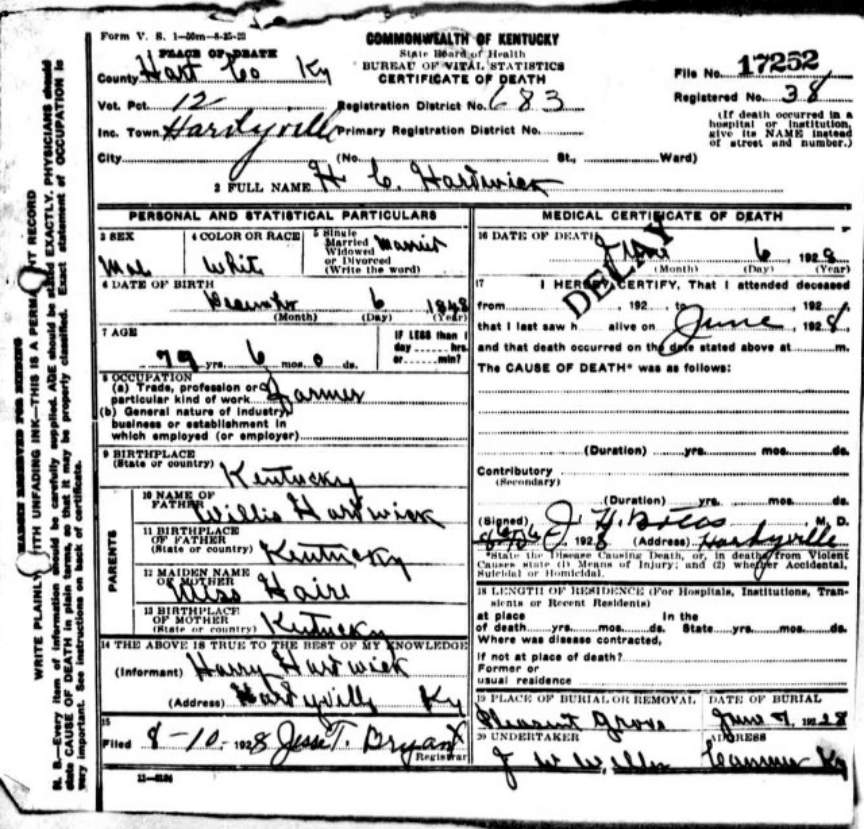 Form V. S. 1—50m—8-25-22
COMMONWEALTH OF KENTUCKY
State Board of Health
BUREAU OF VITAL STATISTICS
CERTIFICATE OF DEATH
File No. 17252
Registered No. 38
(If death occurred in a hospital or institution, give its NAME instead of street and number.)
PLACE OF DEATH
County Hart Co Ky
Vot. Pct. 12 Registration District No. 683
Inc. Town Hardyville Primary Registration District No.
City (No. St., Ward)
2 FULL NAME H C. Hardwick
PERSONAL AND STATISTICAL PARTICULARS
3 SEX
Mal
4 COLOR OR RACE
Whit
5 Single
Married
Widowed
or Divorced
(Write the word)
6 DATE OF BIRTH
6 1848
(Month) (Day) (Year)
7 AGE
79 yrs. 6 mos. 0 ds.
IF LESS than 1
day hrs.
or min?
8 OCCUPATION
(a) Trade, profession or
particular kind of work Farmer
(b) General nature of industry,
business or establishment in
which employed (or employer)
9 BIRTHPLACE
(State or country) Kentucky
PARENTS
10 NAME OF
FATHER Willis Hardwick
11 BIRTHPLACE
OF FATHER
(State or country) Kentucky
12 MAIDEN NAME
OF MOTHER Miss Haire
13 BIRTHPLACE
OF MOTHER
(State or country) Kntucky
14 THE ABOVE IS TRUE TO THE BEST OF MY KNOWLEDGE
(Informant) Harry Hardwick
(Address) Hardyville Ky
15
Filed 8-10. 1928 Jesse T. Bryant
Registrar
11—6184
MEDICAL CERTIFICATE OF DEATH
16 DATE OF DEATH June 6 1928
(Month) (Day) (Year)
DELAY
17 I HEREBY CERTIFY, That I attended deceased
from , 192 , to , 192
that I last saw h alive on June , 1928,
and that death occurred on the date stated above at m.
The CAUSE OF DEATH* was as follows:
(Duration) yrs. mos. ds.
Contributory
(Secondary)
(Duration) yrs. mos. ds.
(Signed) M. D.
, 1928 (Address) Hardyville
*State the Disease Causing Death, or, in deaths from Violent
Causes state (1) Means of Injury; and (2) whether Accidental,
Suicidal or Homicidal.
18 LENGTH OF RESIDENCE (For Hospitals, Institutions, Tran-
sients or Recent Residents)
at place In the
of death yrs. mos. ds. State yrs. mos. ds.
Where was disease contracted,
if not at place of death?
Former or
usual residence
19 PLACE OF BURIAL OR REMOVAL
Pleasant Grove
DATE OF BURIAL
June 7, 1928
20 UNDERTAKER
J W
ADDRESS
Canmer Ky
MARGIN RESERVED FOR BINDING
WRITE PLAINLY WITH UNFADING INK—THIS IS A PERMANENT RECORD
N. B.—Every item of information should be carefully supplied. AGE should be stated EXACTLY. PHYSICIANS should
state CAUSE OF DEATH in plain terms, so that it may be properly classified. Exact statement of OCCUPATION is
very important. See instructions on back of certificate.